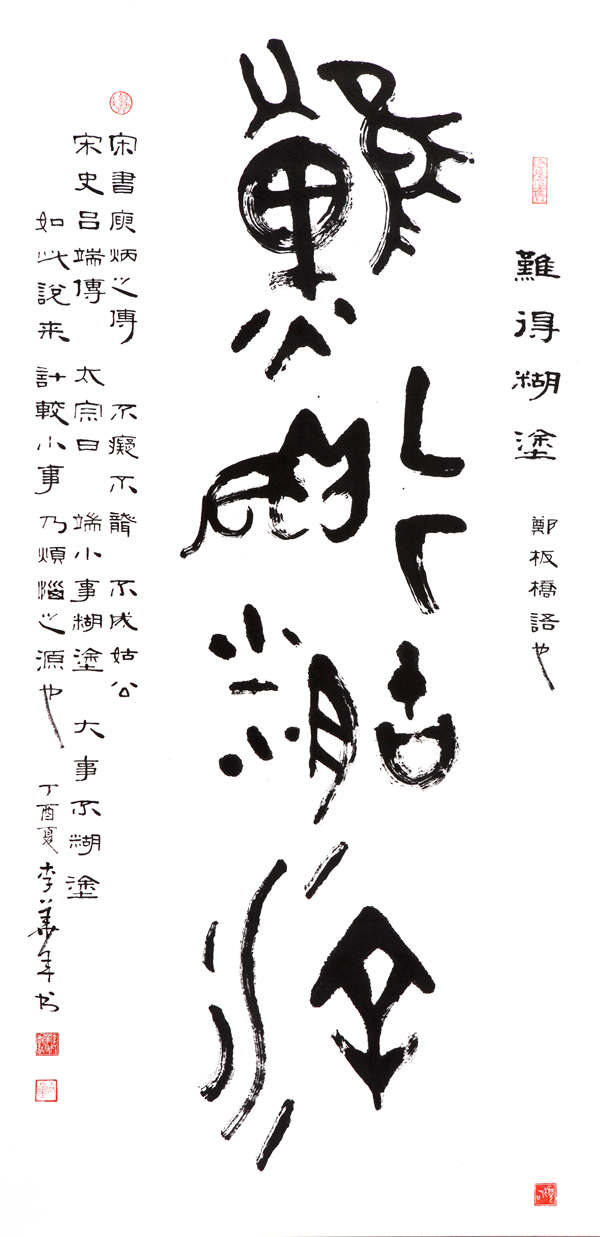 難得糊塗 鄭板橋語也
難得糊塗
宋書庾炳之傳 不癡不聾 不成姑公
宋史呂端傳 太宗曰 端小事糊塗 大事不糊塗
如此說来 計較小事 乃煩惱之源也 丁酉夏 李華年书